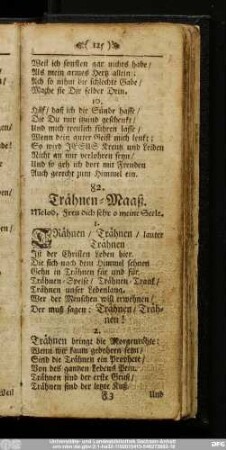 ( 125 )
Weil ich sonsten gar nichts habe/
Als mein armes Hertz allein:
Ach so nihm die schlechte Gabe/
Mache sie Dir selber Drin.
10.
Hilf/ daß ich die Sünde hasse/
Die Du mir
Und mich treulich führen lasse/
Wenn dein guter Geist mich lenkt:
So wird JESUS Kreutz und Leiden
Nicht an mir verlohren seyn/
Und so geh ich dort mit Freuden
Auch gerecht zum Himmel ein.
82.
Trähnen-Maaß.
Melod. Freu dich sehr o meine Seele.
1.
TRähnen/ Trähnen/ lauter
Trähnen
Ist der Christen Leben hier.
Die sich nach dem Himmel sehnen
Gehn in Trähnen für und für.
Trähnen-Speise/ Trähnen-Tranck/
Trähnen unser Lebenlang.
Wer der Menschen will erwehnen/
Der muß sagen: Trähnen/ Träh-
nen!
2.
Trähnen bringt die Morgenröhte:
Wenn wir kaum gebohren seyn/
Sind die Trähnen ein Prophete/
Von des gantzen Lebens Pein.
Trähnen sind der erste Gruß/
Trähnen sind der letzte Kuß.
F3 Und
Weil